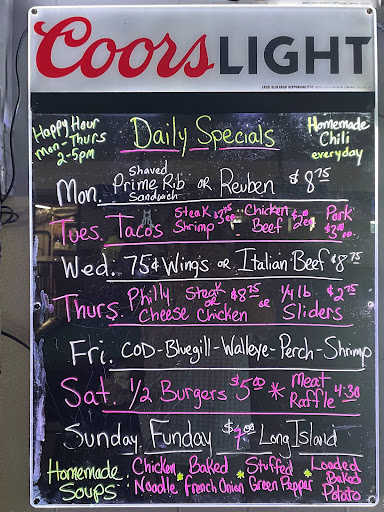 Coors LIGHT
Happy Hour
Mon-Thurs
2-5pm
Daily Specials
Homemade
Chili
everyday
Mon. Shaved Prime Rib Sandwich or Reuben $8.75
Tues. Tacos Steak Shrimp Chicken Beef Pork $3.00
Wed. 75¢ Wings or Italian Beef $8.75
Thurs. Philly Cheese Steak or Chicken $8.75 or 1/4 lb Sliders $2.75
Fri. COD-Bluegill-Walleye-Perch-Shrimp
Sat. 1/2 Burgers $5.00 * Meat Raffle 4:30
Sunday Funday Long Island
Homemade Soups: Chicken Noodle * Baked French Onion * Stuffed Green Pepper * Loaded Baked Potato